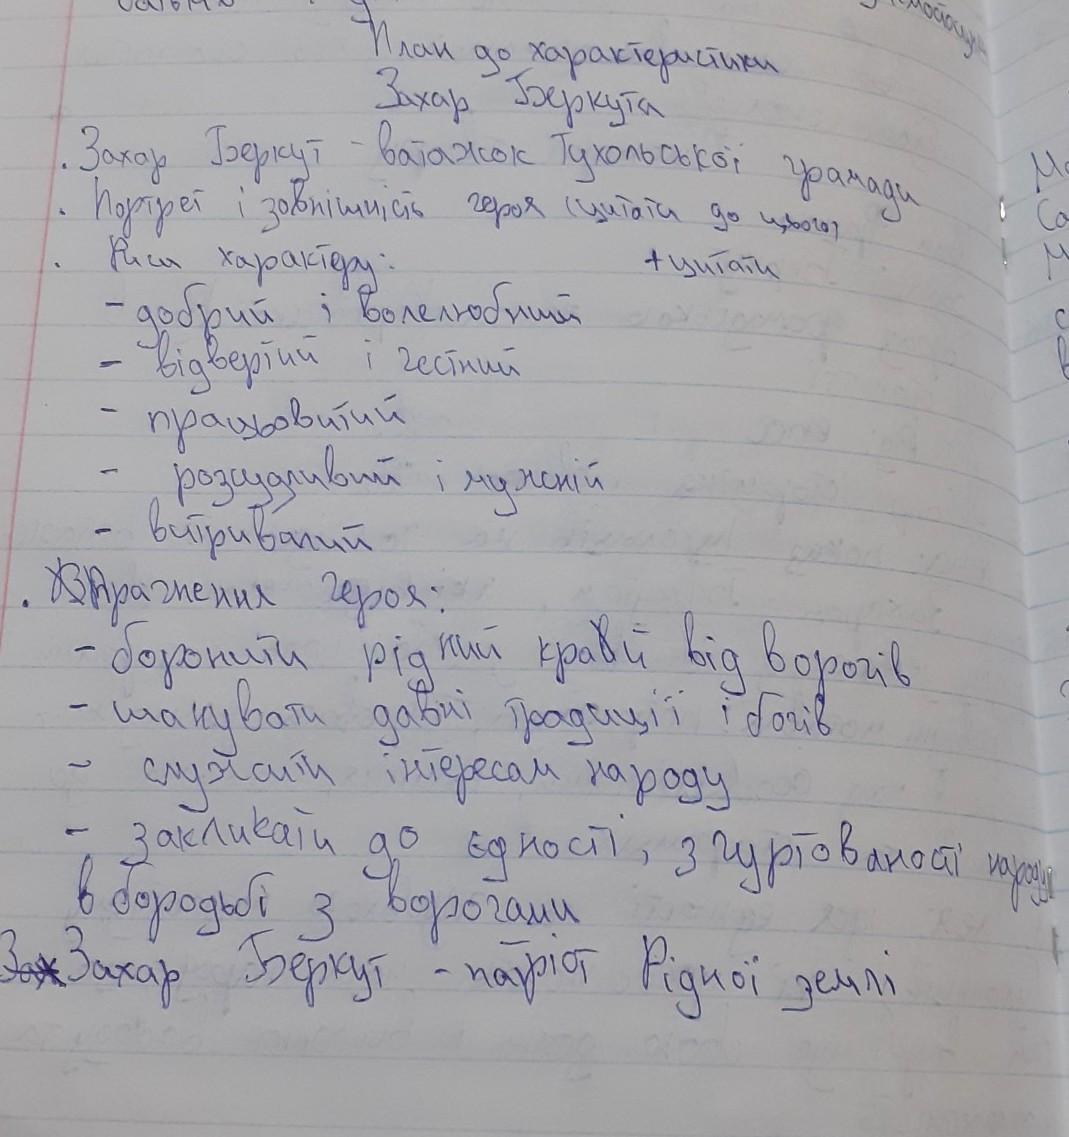 План до характеристики
Захар Беркута
. Захар Беркут - ватажок Тухольської громади
. Портрет і зовнішність героя (цитати до цього)
. Риси характеру: + цитати
- добрий і волелюбний
- відвертий і чесний
- працьовитий
- розсудливий і мужній
- витривалий
. Прагнення героя:
- боронити рідний край від ворогів
- шанувати давні традиції і богів
- служити інтересам народу
- закликати до єдності, згуртованості народу
в бородьбі з ворогами
Захар Беркут - патріот Рідної землі